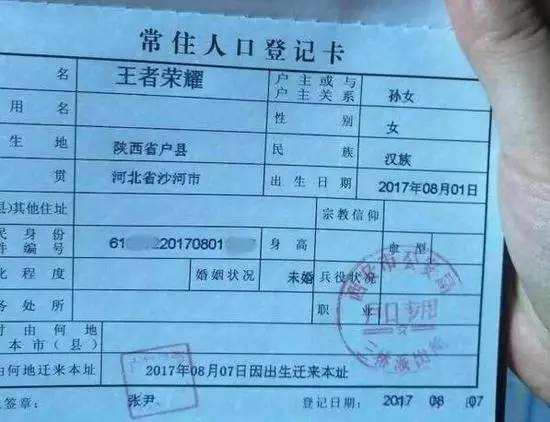 常住人口登记卡
名 王者荣耀 户主或与户主关系 孙女
用名 性别 女
生地 陕西省户县 民族 汉族
贯 河北省沙河市 出生日期 2017年08月01日
县)其他住址 宗教信仰
民身份件编号 61 220170801 身高 血型
化程度 婚姻状况 未婚 兵役状况
务处所 职业
时由何地
本市(县)
何地迁来本址 2017年08月07日因出生迁来本址
签章: 张尹 登记日期: 2017 08 07
户口专用